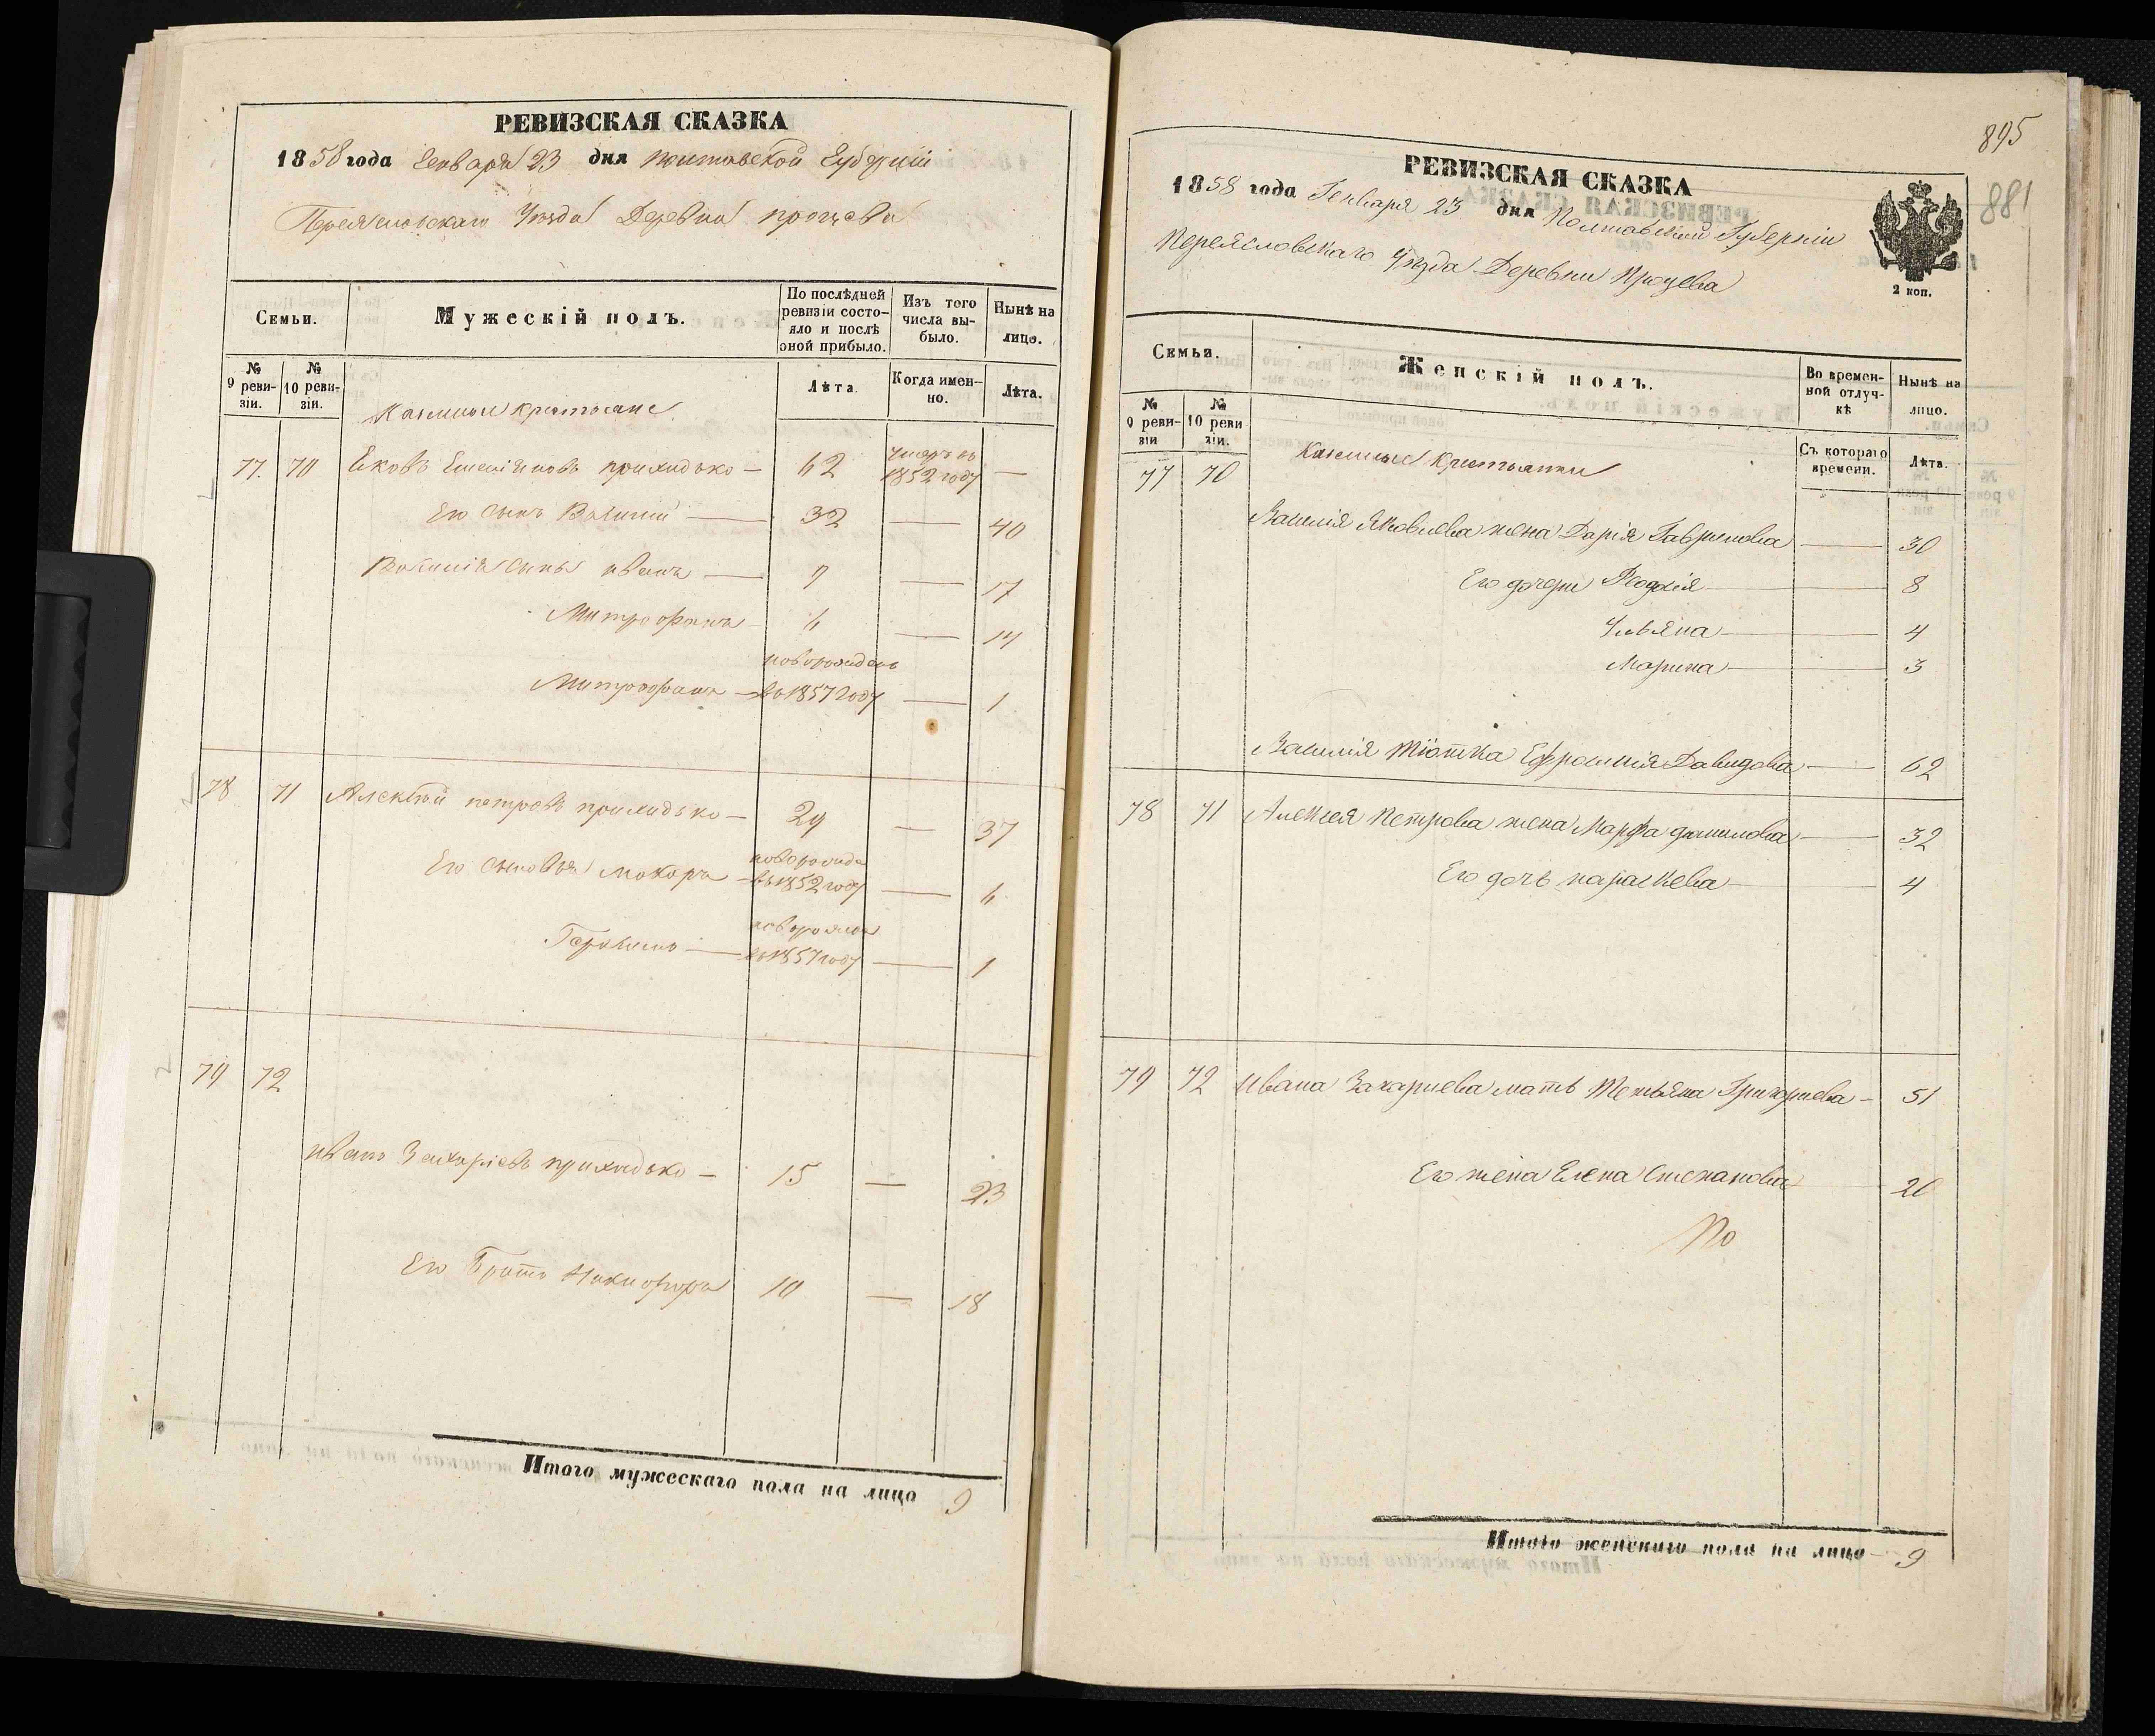 РЕВИЗСКАЯ СКАЗКА
1858 года Генваря 23 дня Полтавской Губерніи
Переясловскаго Уезда Деревни Процева
Семьи.
Мужескій полъ.
По послѣдней ревизіи состояло и послѣ оной прибыло.
Изъ того числа выбыло.
Нынѣ на лицо.
№ 9 ревизіи.
№ 10 ревизіи.
Лѣта
Когда именно.
Лѣта.
Казенные крестьяне
77. 70 Яковъ Емеліяновъ приходько — 62 умеръ въ 1852 году —
Его сынъ Василий — 32 — 40
Василія сыны иванъ — 9 — 17
Митрофанъ — 6 — 14
Митрофанъ — новорожденъ въ 1857 году — 1
78 71 Алексѣй петровъ приходько — 29 — 37
Его сыновья Макаръ — новорожде въ 1852 году — 6
Герасимъ — новорожде въ 1857 году — 1
79 72
иванъ Захаріевъ приходько — 15 — 23
Его Братъ Никифоръ 10 — 18
Итого мужескаго пола на лицо 9
895
881
РЕВИЗСКАЯ СКАЗКА
1858 года Генваря 23 дня Полтавской Губерніи
Переясловскаго Уѣзда Деревни Процева
2 коп.
Семьи.
Женскій полъ.
Во временной отлучкѣ
Нынѣ на лицо.
№ 9 ревизіи
№ 10 ревизіи.
Съ котораго времени.
Лѣта.
Казенные крестьянки
77 70
Василія Яковлева жена Дарія Гаврилова — 30
Его дочери Феодосія — 8
Ульяна — 4
Марина — 3
Василія тіотка Ефросинія Давидова — 62
78 71 Алексея Петрова жена Марфа данилова — 32
Его дочь параскева — 4
79 72 Ивана Захариева мать Тетьяна Григориева — 51
Его жена Елена Степанова 20
По
Итого женскаго пола на лицо — 9